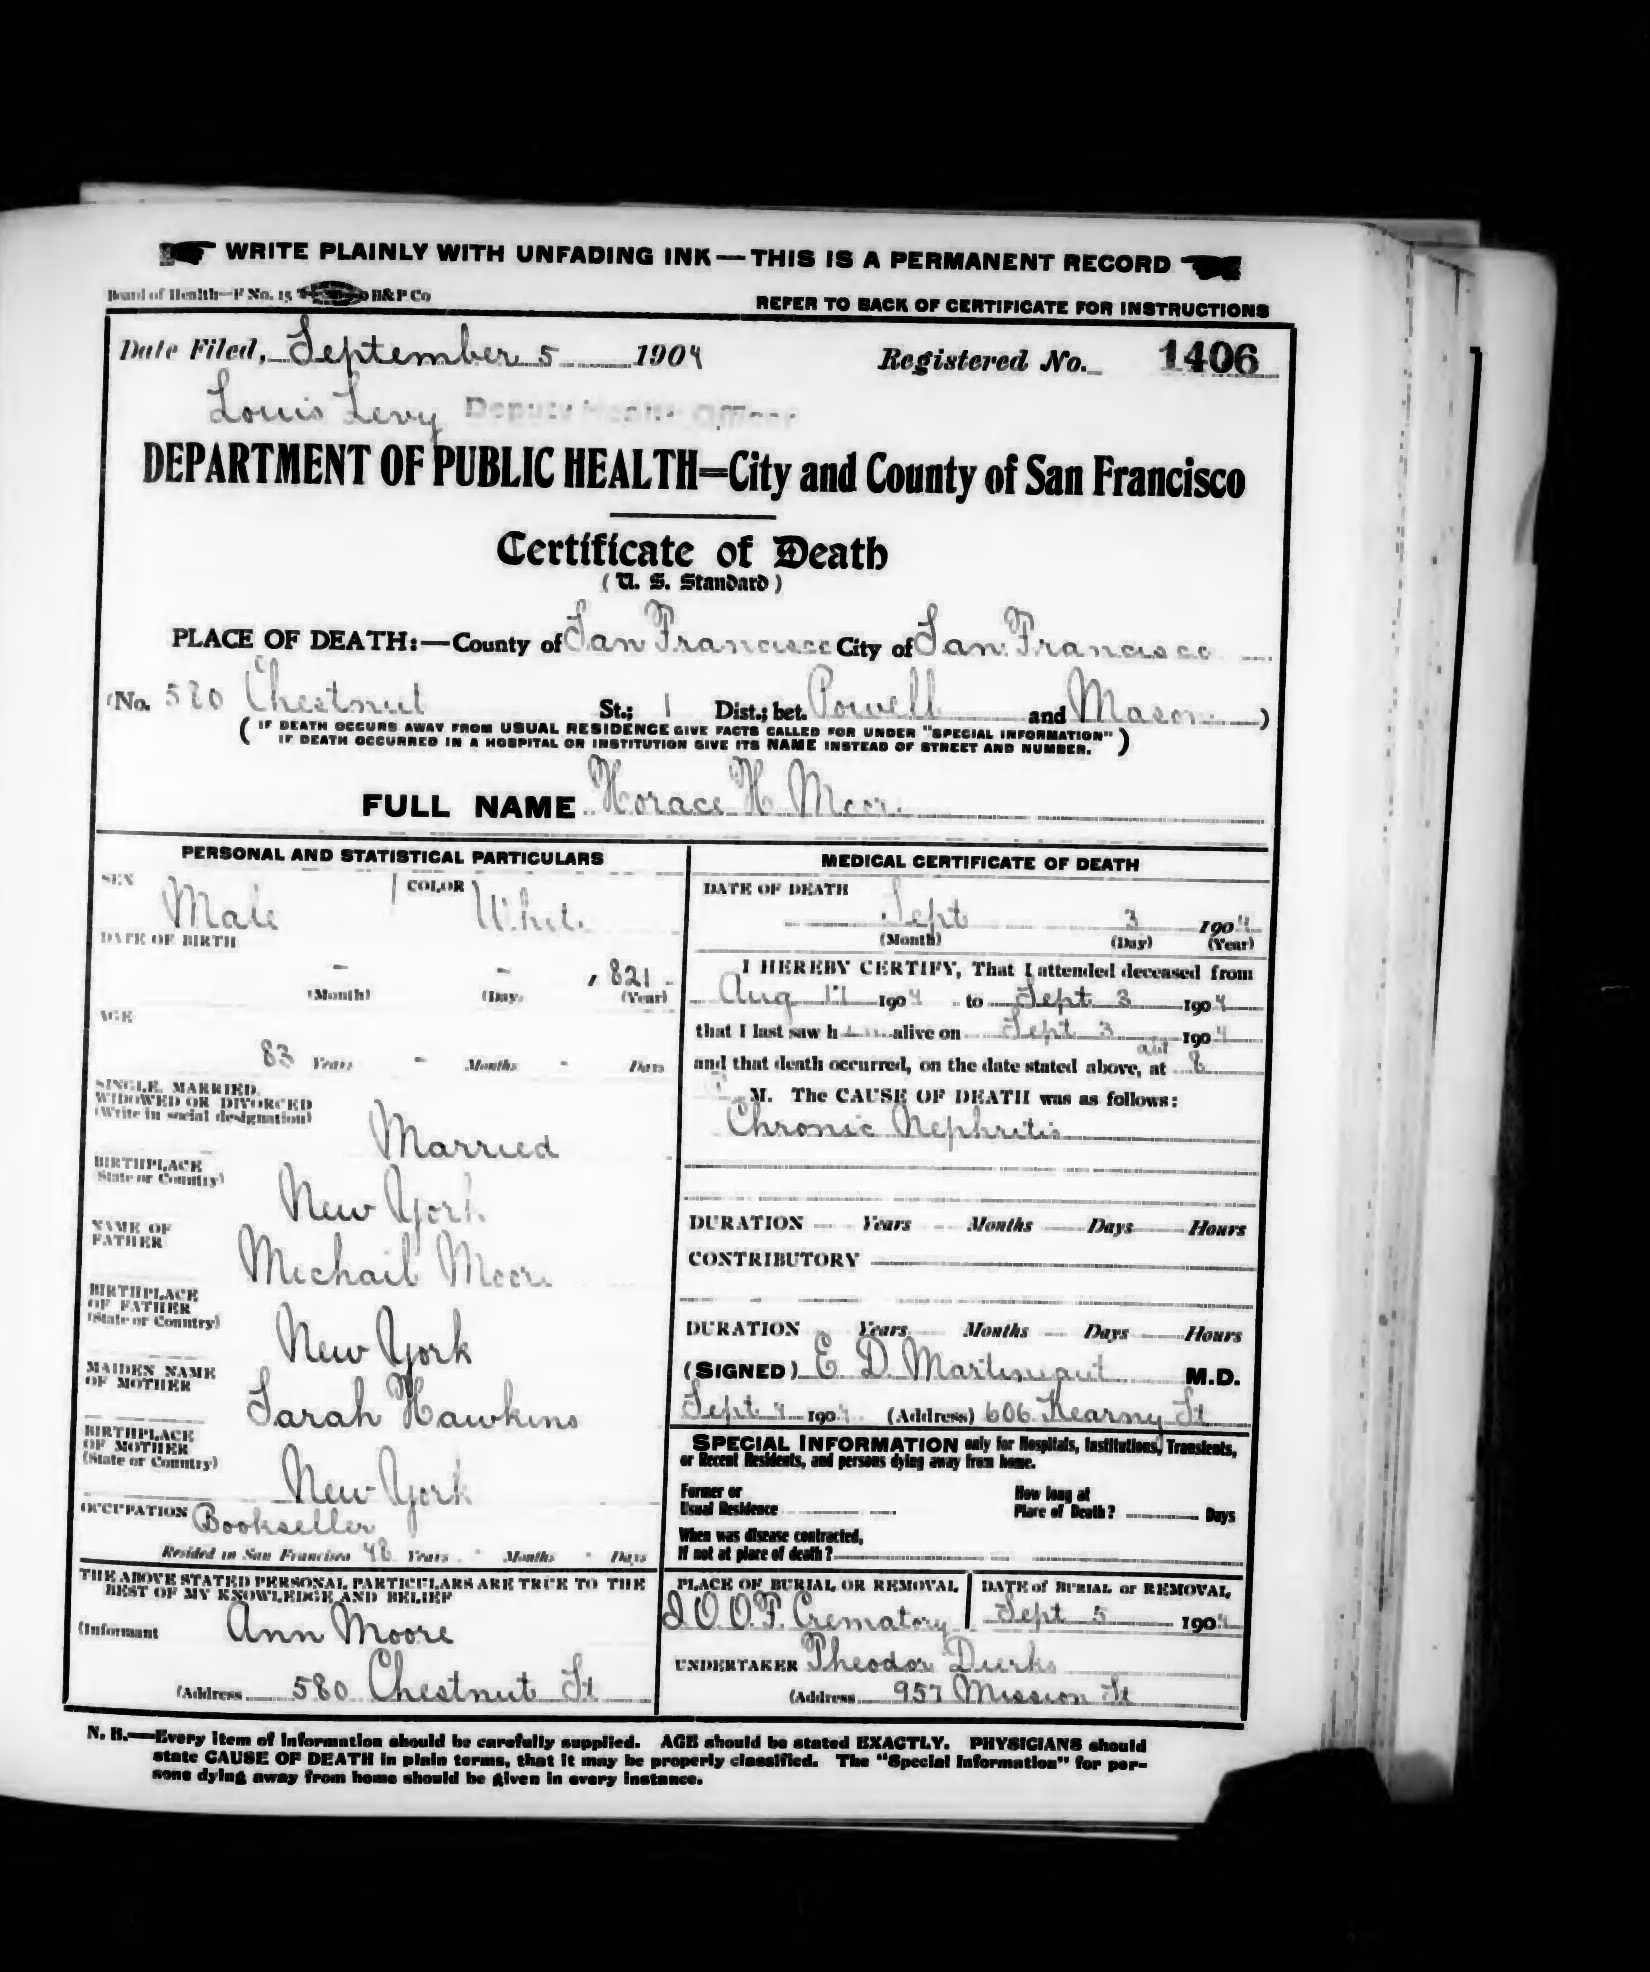 WRITE PLAINLY WITH UNFADING INK—THIS IS A PERMANENT RECORD
Board of Health—F No. 15 H&P Co
REFER TO BACK OF CERTIFICATE FOR INSTRUCTIONS
Date Filed, September 5 1904 Registered No. 1406
Louis Levy Deputy Health Officer
DEPARTMENT OF PUBLIC HEALTH=City and County of San Francisco
Certificate of Death
(U. S. Standard)
PLACE OF DEATH:—County of San Francisco City of San Francisco
(No. 580 Chestnut St.; 1 Dist.; bet. Powell and Mason)
(IF DEATH OCCURS AWAY FROM USUAL RESIDENCE GIVE FACTS CALLED FOR UNDER "SPECIAL INFORMATION"
IF DEATH OCCURRED IN A HOSPITAL OR INSTITUTION GIVE ITS NAME INSTEAD OF STREET AND NUMBER.)
FULL NAME Horace H. Moore
PERSONAL AND STATISTICAL PARTICULARS
SEX Male COLOR White
DATE OF BIRTH
- - 1821
(Month) (Day) (Year)
AGE
83 Years - Months - Days
SINGLE, MARRIED,
WIDOWED OR DIVORCED
(Write in social designation)
Married
BIRTHPLACE
(State or Country)
New York
NAME OF
FATHER
Michail Moore
BIRTHPLACE
OF FATHER
(State or Country)
New York
MAIDEN NAME
OF MOTHER
Sarah Hawkins
BIRTHPLACE
OF MOTHER
(State or Country)
New York
OCCUPATION Bookseller
Resided in San Francisco 48 Years - Months - Days
THE ABOVE STATED PERSONAL PARTICULARS ARE TRUE TO THE
BEST OF MY KNOWLEDGE AND BELIEF
(Informant Ann Moore
(Address 580 Chestnut St
MEDICAL CERTIFICATE OF DEATH
DATE OF DEATH
Sept 3 1904
(Month) (Day) (Year)
I HEREBY CERTIFY, That I attended deceased from
Aug 1904 to Sept 3 1904
that I last saw him alive on Sept 3 1904
and that death occurred, on the date stated above, at abt 8
M. The CAUSE OF DEATH was as follows:
Chronic Nephritis
DURATION Years Months Days Hours
CONTRIBUTORY
DURATION Years Months Days Hours
(SIGNED) E. D. M.D.
Sept 4 1904 (Address) 606 Kearny St
SPECIAL INFORMATION only for Hospitals, Institutions, Transients,
or Recent Residents, and persons dying away from home.
Former or
Usual Residence
How long at
Place of Death? Days
When was disease contracted,
If not at place of death?
PLACE OF BURIAL OR REMOVAL
I.O.O.F. Crematory
DATE of BURIAL or REMOVAL
Sept 5 1904
UNDERTAKER Theodor Dierks
(Address 957 Mission St
N. B.—Every item of information should be carefully supplied. AGE should be stated EXACTLY. PHYSICIANS should
state CAUSE OF DEATH in plain terms, that it may be properly classified. The "Special Information" for per-
sons dying away from home should be given in every instance.